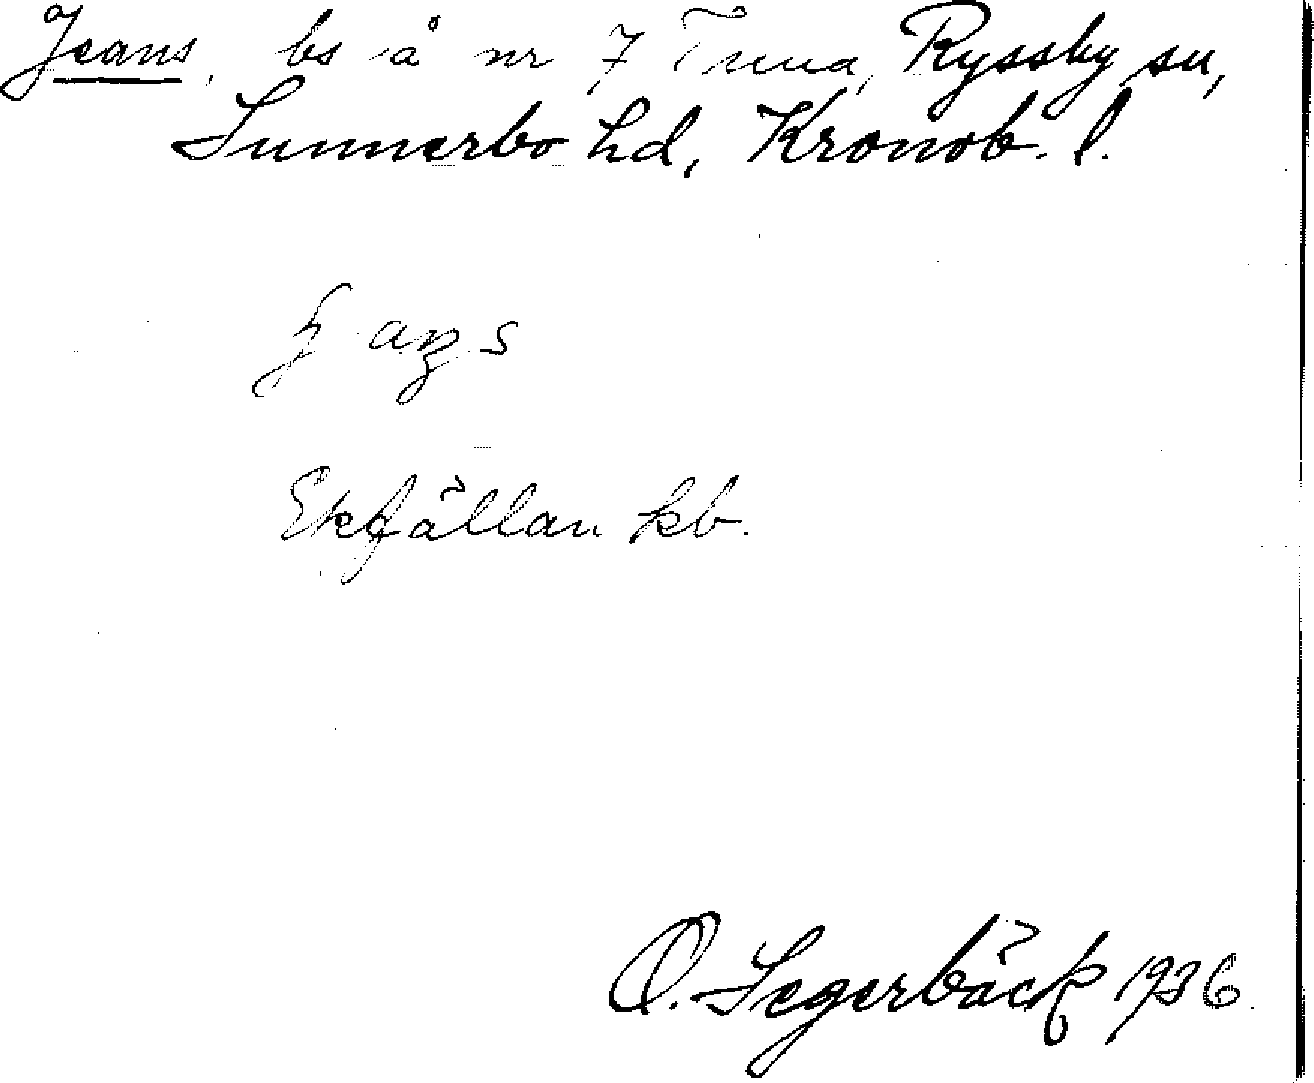 Jeans, bs å nr 7 Tuna, Ryssby sn,
Sunnerbo hd, Kronob. l.
Ekfällan kb.
O. Segerbäck 1936.